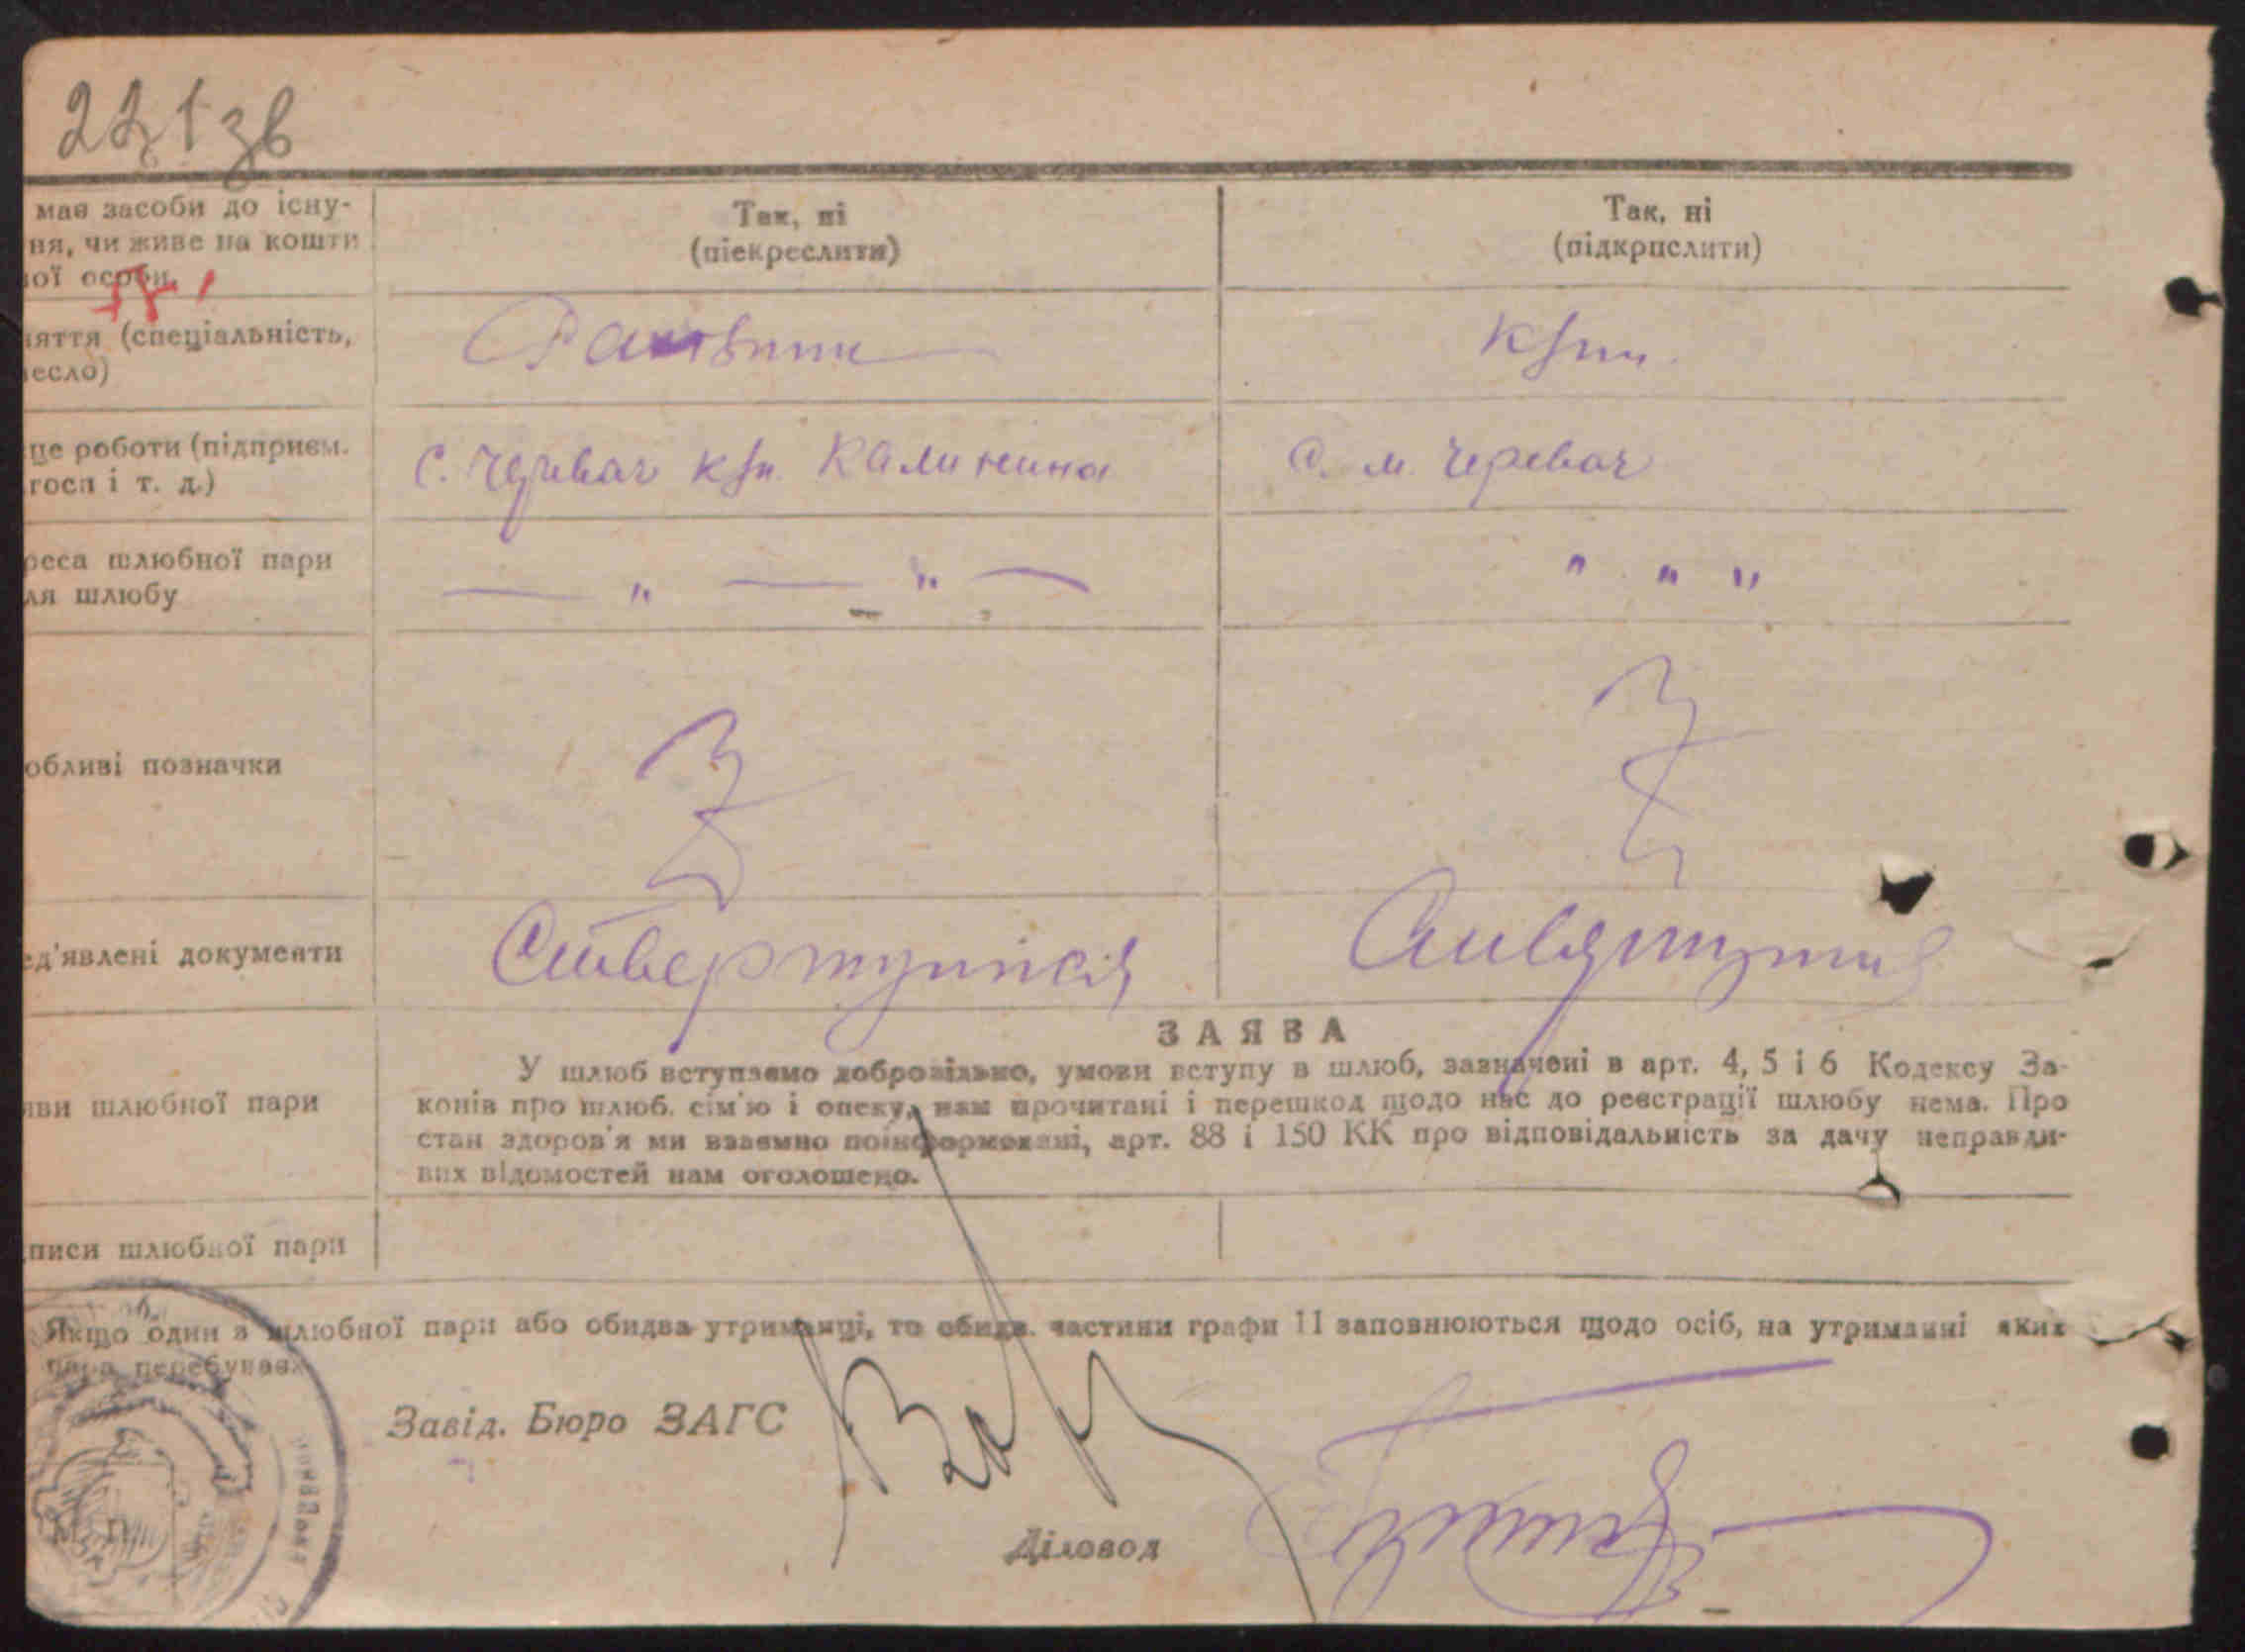 221 зв
має засоби до існу-
ня, чи живе на кошти
ої особи.
Так, ні
(піекреслити)
Так, ні
(підкрпслити)
яття (спеціальність,
есло)
це роботи (підприєм.
госп і т. д.)
с. Черевач Калинина
с. м. Черевач
реса шлюбної пари
ля шлюбу
— „ — „ —
„ „ „
обливі позначки
ед'явлені документи
ЗАЯВА
яви шлюбної пари
У шлюб вступаємо добровільно, умови вступу в шлюб, зазначені в арт. 4, 5 і 6 Кодексу За-
конів про шлюб. сім'ю і опеку, нам прочитані і перешкод щодо нас до реєстрації шлюбу нема. Про
стан здоров'я ми взаємно поінформовані, арт. 88 і 150 КК про відповідальність за дачу неправди-
вих відомостей нам оголошено.
писи шлюбної пари
Якщо один з шлюбної пари або обидва утриманці, то обидв. частини графи 11 заповнюються щодо осіб, на утриманні яких
пара перебуває.
Завід. Бюро ЗАГС
М. П.
Діловод